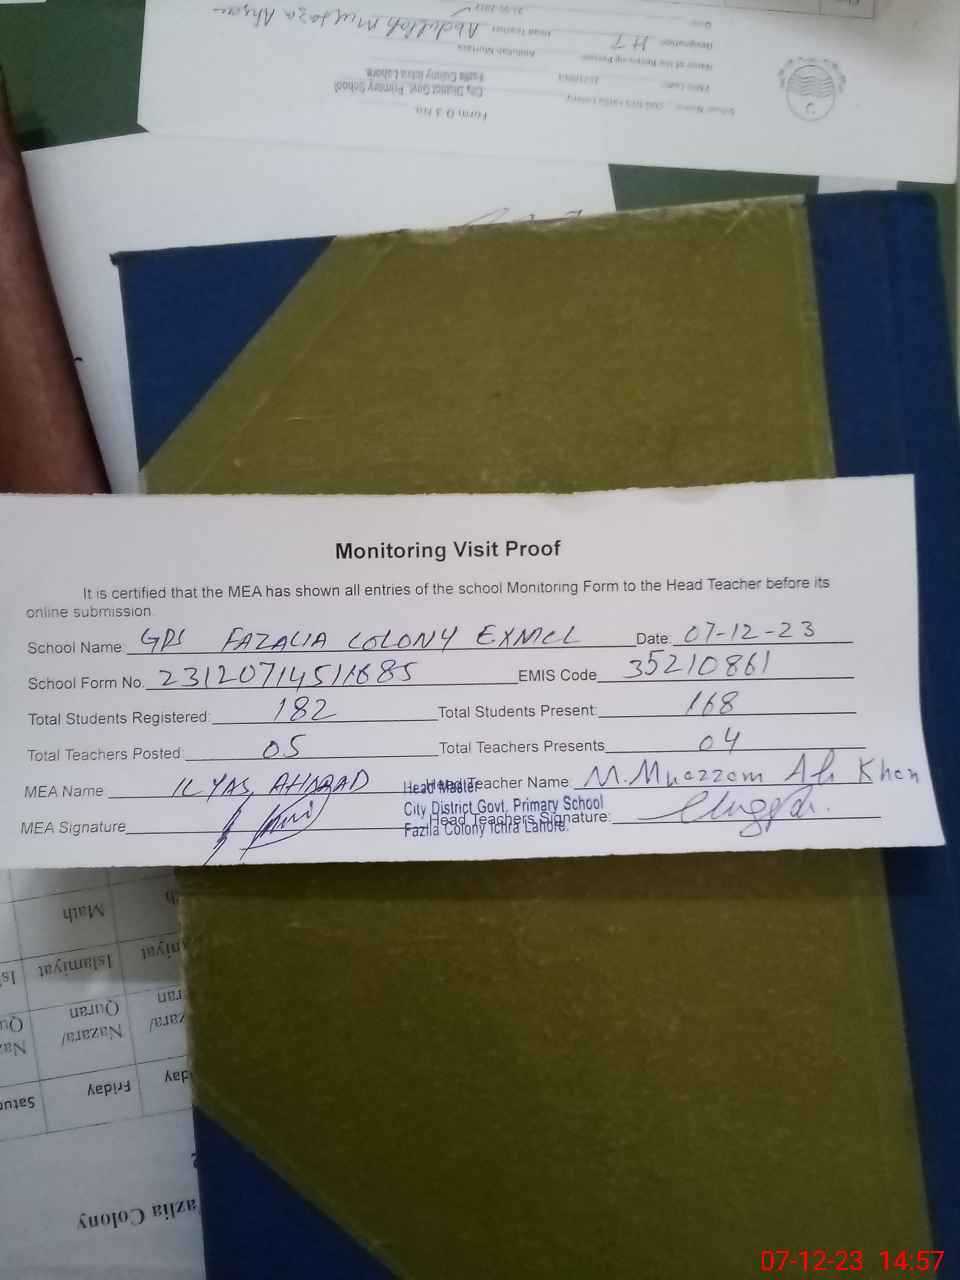 Form D 3 No.
City District Govt. Primary School
Fazlia Colony Ichra Lahore
Name of the Receiving Person
Abdullah Murtaza
Designation
HT
Head Teacher
Monitoring Visit Proof
It is certified that the MEA has shown all entries of the school Monitoring Form to the Head Teacher before its
online submission.
School Name: GPS FAZALIA COLONY EXMCL Date: 07-12-23
School Form No. 23120714511685 EMIS Code 35210861
Total Students Registered: 182 Total Students Present: 168
Total Teachers Posted: 05 Total Teachers Presents 04
MEA Name ILYAS AHMAD Head Teacher Name: M.Muazzam Ali Khan
Head Master
City District Govt. Primary School
MEA Signature Head Teachers Signature:
Fazlia Colony Ichra Lahore.
Math
Islamiyat
Nazara/
Quran
Friday
azlia Colony
07-12-23 14:57